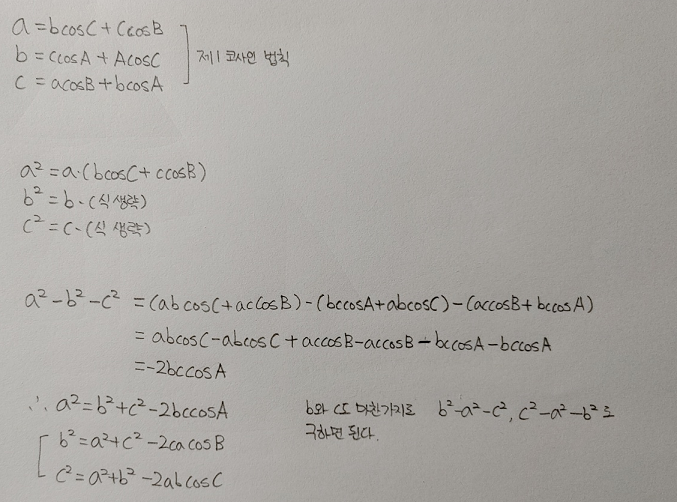 a = bcosC + CcosB
b = ccosA + AcosC
c = acosB + bcosA
제1 코사인 법칙
a² = a·(bcosC + ccosB)
b² = b·(식 생략)
c² = c·(식 생략)
a² - b² - c² = (abcosC + accosB) - (bccosA + abcosC) - (accosB + bccosA)
= abcosC - abcosC + accosB - accosB - bccosA - bccosA
= -2bccosA
∴ a² = b² + c² - 2bccosA
b² = a² + c² - 2cacosB
c² = a² + b² - 2abcosC
b와 c도 마찬가지로 b²-a²-c², c²-a²-b²로
구하면 된다.